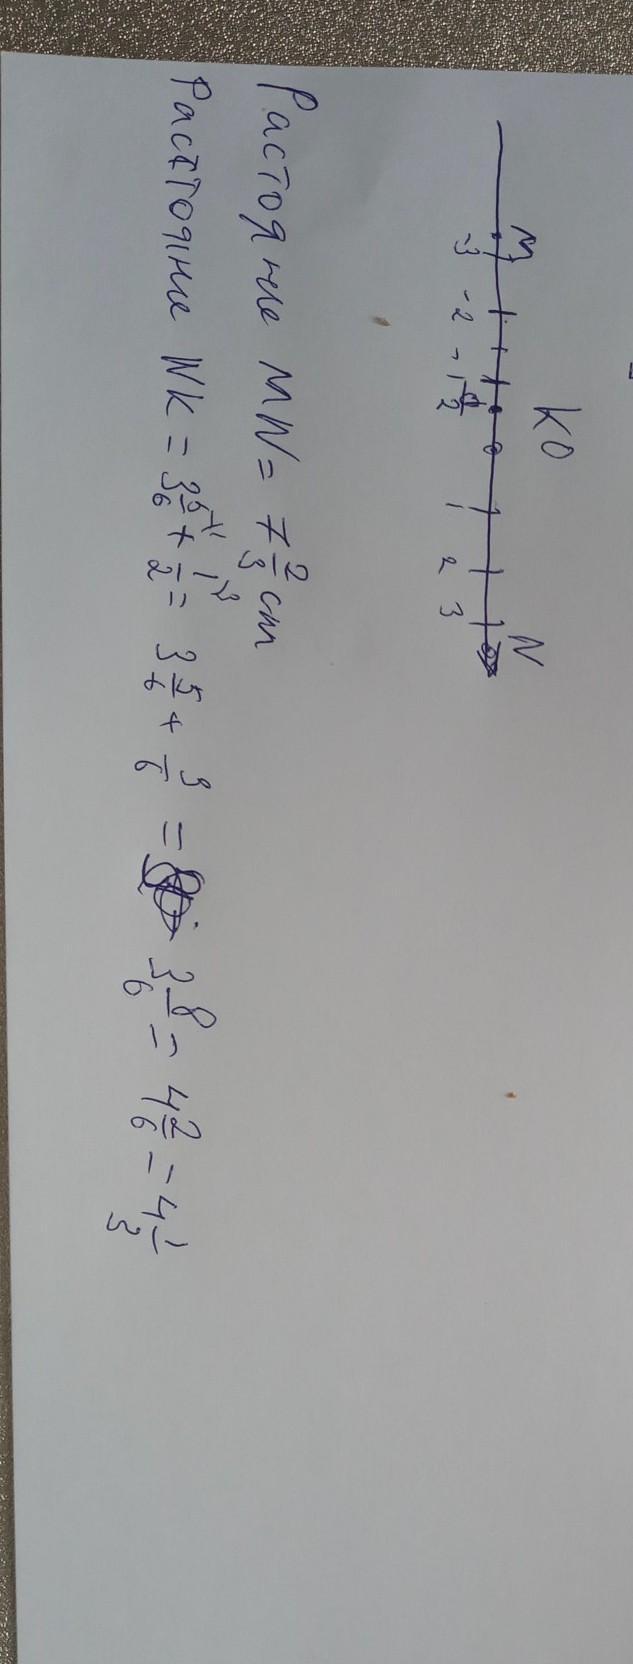 M K O N
-3 -2 -1 -1/2 1 2 3
Растояние MN = 7 2/3 cm
Расстояние NK = 3 5/6 + 1/2 = 3 5/6 + 3/6 = 3 8/6 = 4 2/6 = 4 1/3